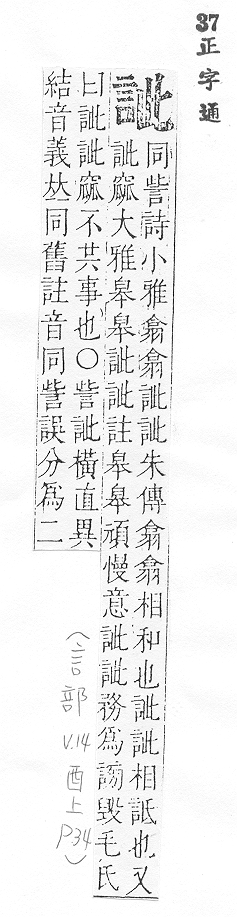 37 正字通
訿
同訾詩小雅翕翕訿訿朱傳翕翕相和也訿訿相詆也又
訿窳大雅皋皋訿訿註皋皋頑慢意訿訿務爲謗毀毛氏
曰訿訿窳不共事也○訾訿橫直異
結音義𠀤同舊註音同訾誤分爲二
(言部 v.14 酉上 p34)